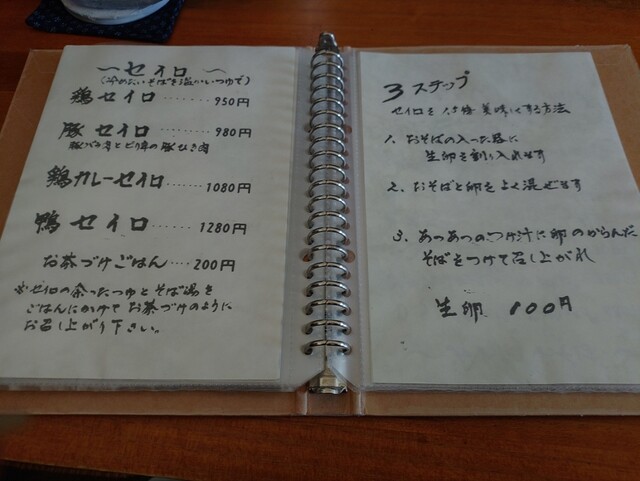 〜セイロ〜
(冷めたいそばを温かいつゆで)
鶏セイロ········950円
豚セイロ········980円
豚バラ肉とピリ辛の豚ひき肉
鶏カレーセイロ······1080円
鴨セイロ······1280円
お茶づけごはん····200円
※セイロの余ったつゆとそば湯を
ごはんにかけてお茶づけのように
お召し上がり下さい。
3ステップ
セイロを1.5倍美味しくする方法
1. おそばの入った器に
生卵を割り入れます
2. おそばと卵をよく混ぜます
3. あつあつのつけ汁に卵のからんだ
そばをつけて召し上がれ
生卵 100円